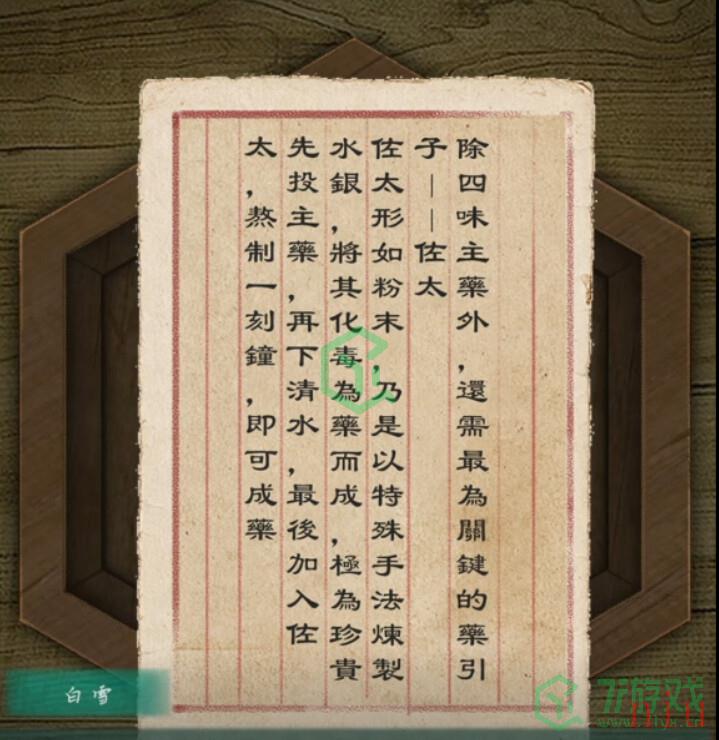 除四味主藥外，還需最為關鍵的藥引
子——佐太
佐太形如粉末，乃是以特殊手法煉製
水銀，將其化毒為藥而成，極為珍貴
先投主藥，再下清水，最後加入佐
太，熬制一刻鐘，即可成藥
白雪
77游戏